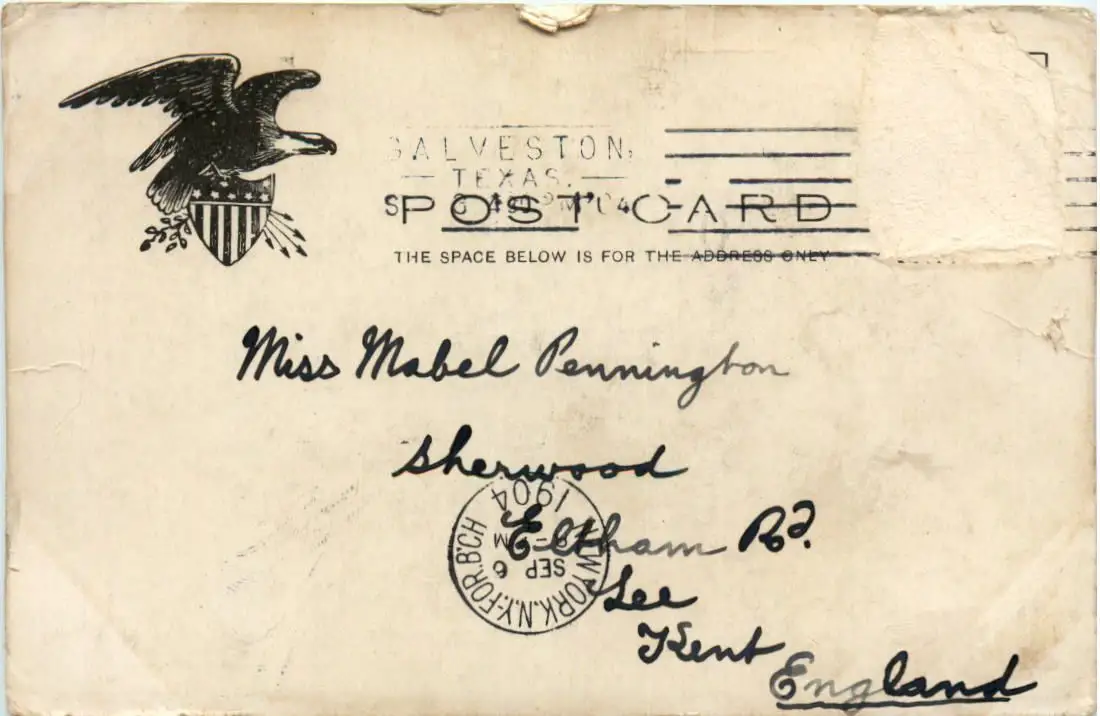 GALVESTON,
TEXAS.
S 3 4 30 PM '04
POST CARD
THE SPACE BELOW IS FOR THE ADDRESS ONLY
Miss Mabel Pennington
Sherwood
Eltham Rd.
Lee
Kent
England
NEW YORK.N.Y-FOR.B'CH
SEP 6
1904